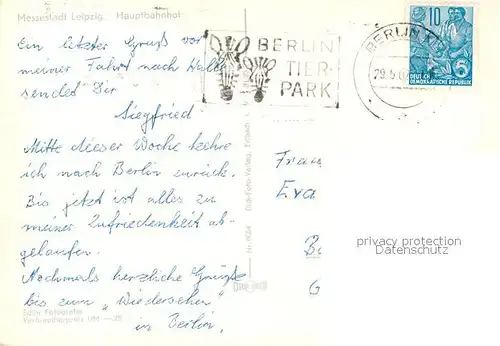 Messestadt Leipzig. Hauptbahnhof.
Ein letzter Gruß vor
meiner Fahrt nach Halle
sendet Dir
Siegfried
Mitte dieser Woche kehre
ich nach Berlin zurück.
Bis jetzt ist alles zu
meiner Zufriedenheit ab-
gelaufen.
Nochmals herzliche Grüße
bis zum „Wiedersehen“
in Berlin.
Echte Fotografie
Verbraucherpreis DM —,25
BERLIN
TIER-
PARK
BERLIN
10
DEUTSCHE
DEMOKRATISCHE REPUBLIK
5
Frau
Eva
B
G
privacy protection
Datenschutz